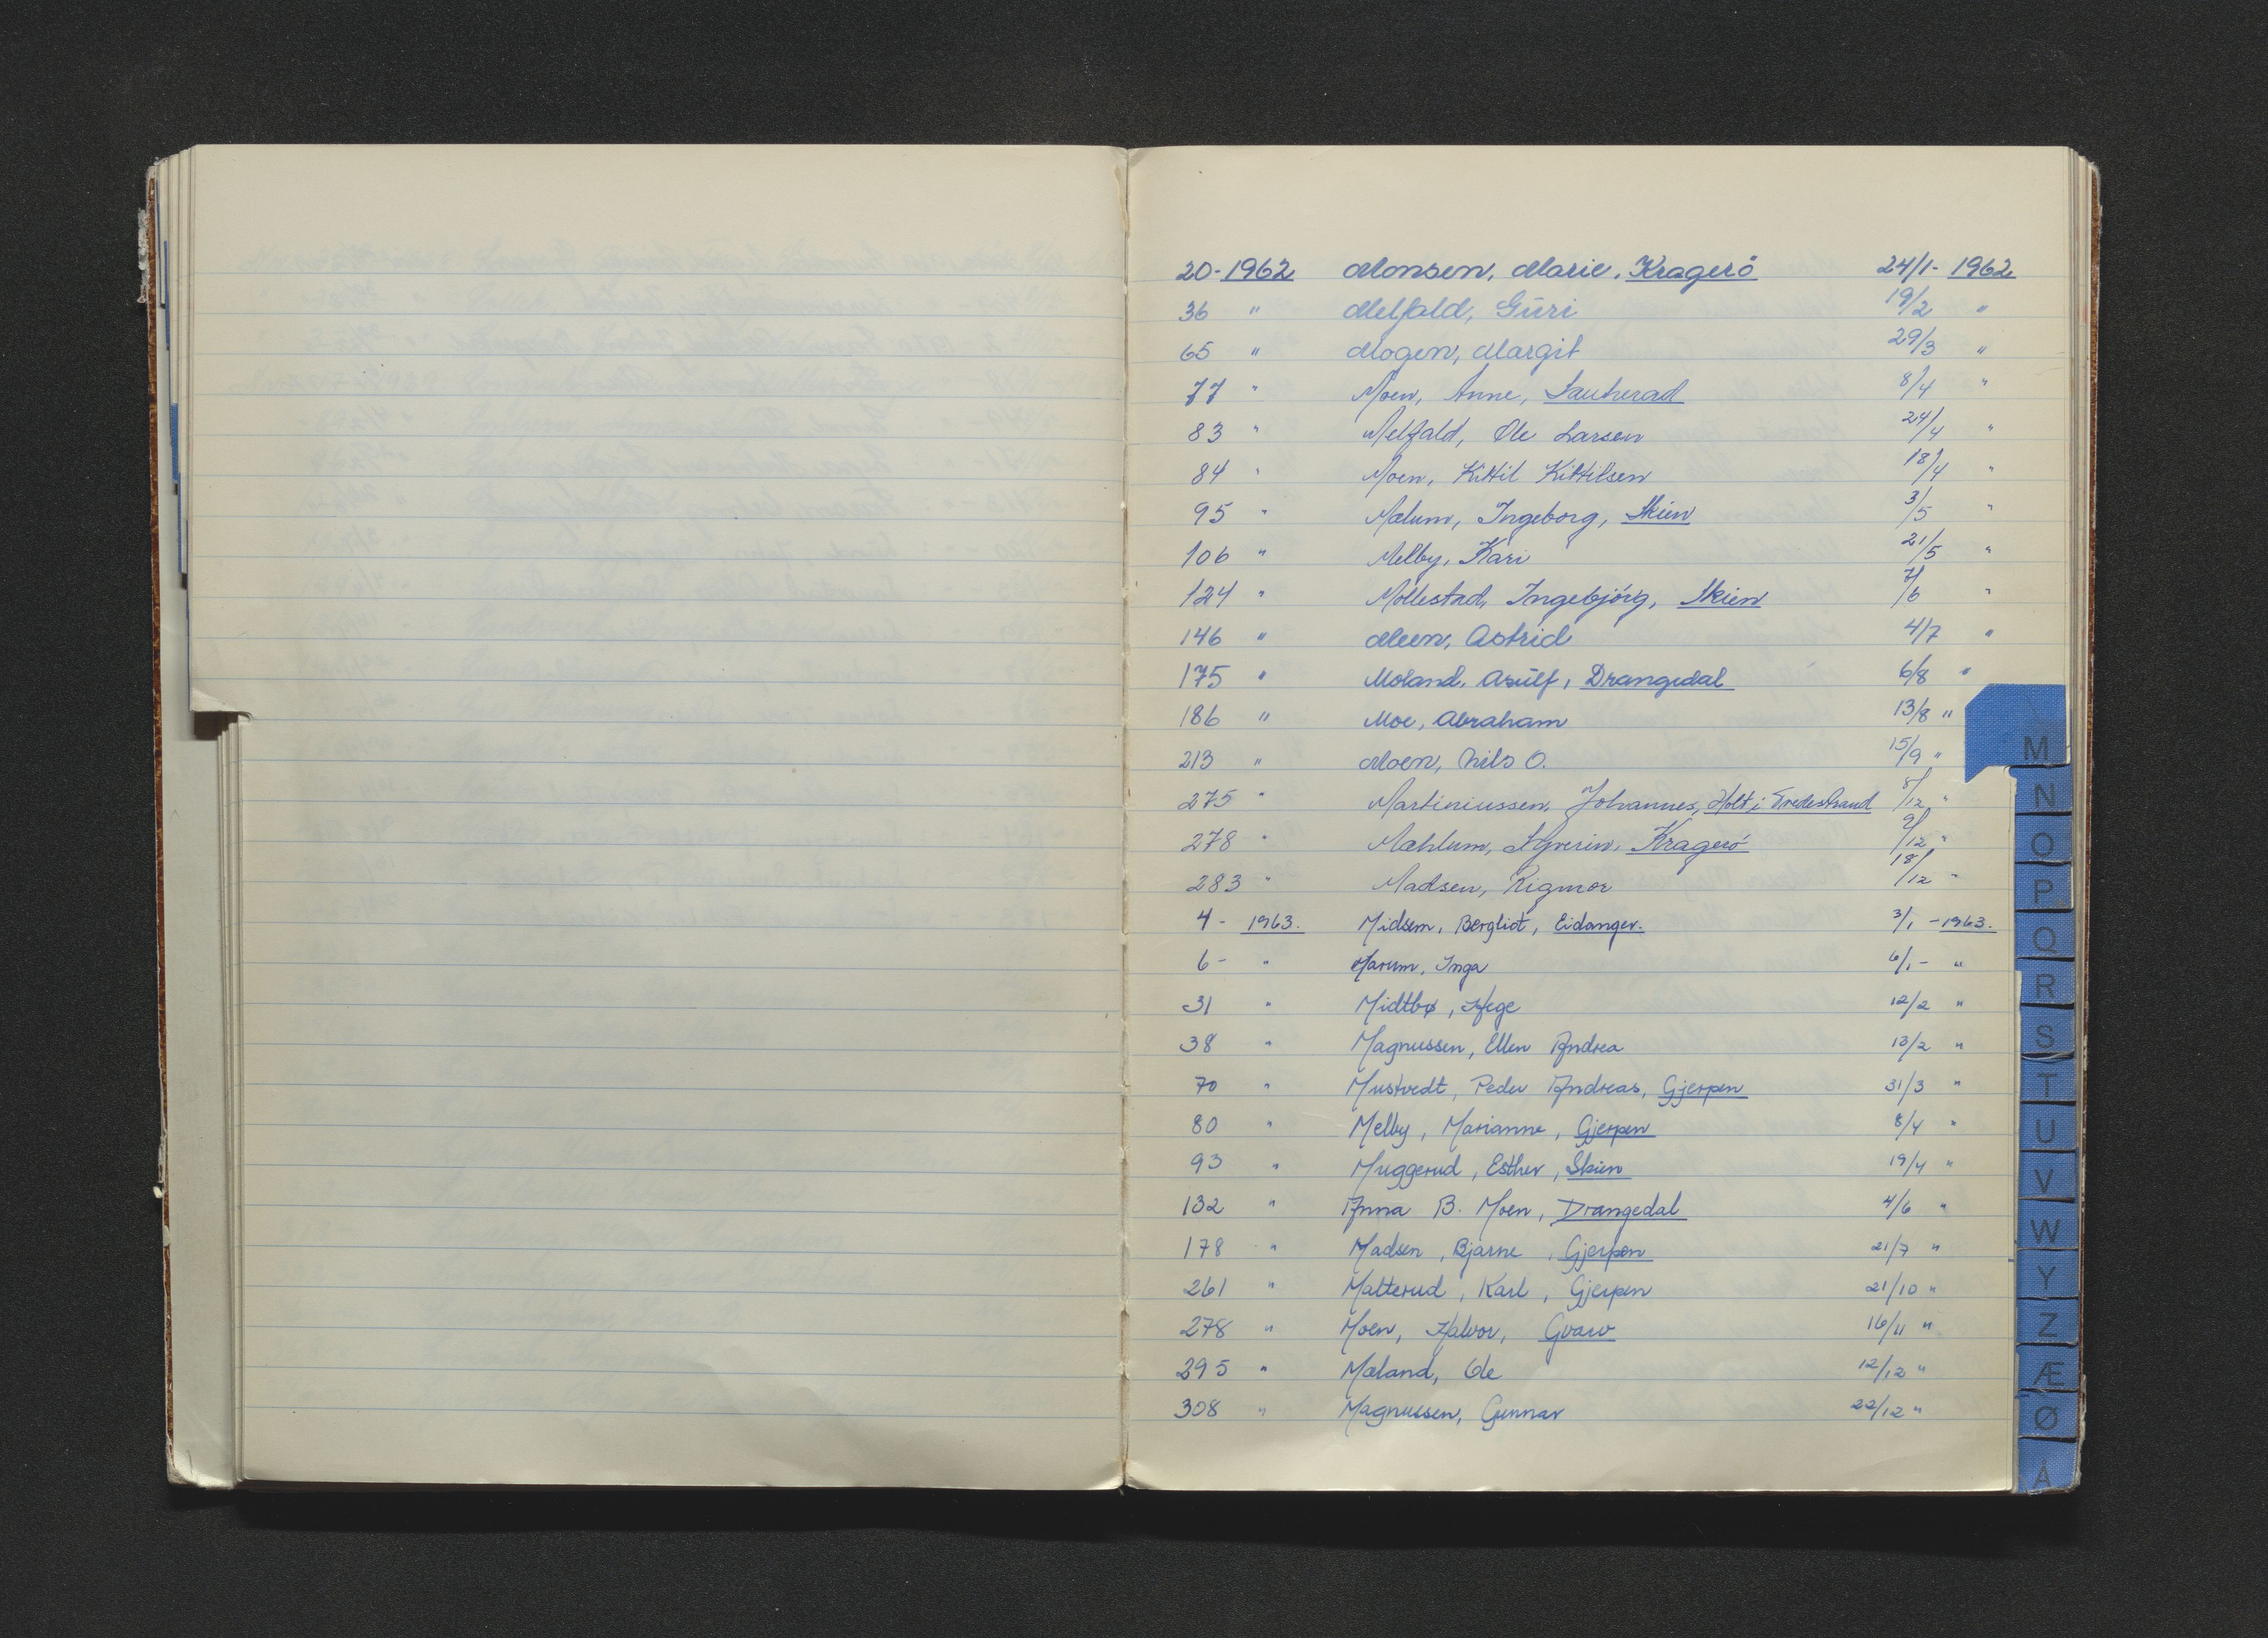 20-1962 Monsen, Marie, Kragerö 24/1-1962
36 " Melfald, Guri 19/2 "
65 " Mogen, Margit 29/3 "
77 " Moen, Anne, Sauherad 8/4 "
83 " Melfald, Ole Larsen 24/4 "
84 " Moen, Kittil Kittilsen 18/4 "
95 " Mælum, Ingeborg, Skien 3/5 "
106 " Melby, Kari 21/5 "
124 " Mollestad, Ingebjörg, Skien 7/6 "
146 " Meen, Astrid 4/7 "
175 " Moland, Asulf, Drangedal 6/8 "
186 " Moe, Abraham 13/8 "
213 " Moen, Nils O. 15/9 "
275 " Martiniussen, Johannes, Holt i Tvedestrand 8/12 "
278 " Mæhlum, Severin, Kragerö 9/12 "
283 " Madsen, Rigmor 18/12 "
4 - 1963. Midsem, Bergliot, Eidanger. 3/1 - 1963.
6 - " Marum, Inga 6/1 - "
31 " Midtbø, Hege 12/2 "
38 " Magnussen, Ellen Andrea 13/2 "
70 " Mustvedt, Peder Andreas, Gjerpen 31/3 "
80 " Melby, Marianne, Gjerpen 8/4 "
93 " Muggerud, Esther, Skien 19/4 "
132 " Anna B. Moen, Drangedal 4/6 "
178 " Madsen, Bjarne, Gjerpen 21/7 "
261 " Malterud, Karl, Gjerpen 21/10 "
278 " Moen, Halvor, Gvarv 16/11 "
295 " Mæland, Ole 12/12 "
308 " Magnussen, Gunnar 22/12 "
M
N
O
P
Q
R
S
T
U
V
W
Y
Z
Æ
Ø
Å